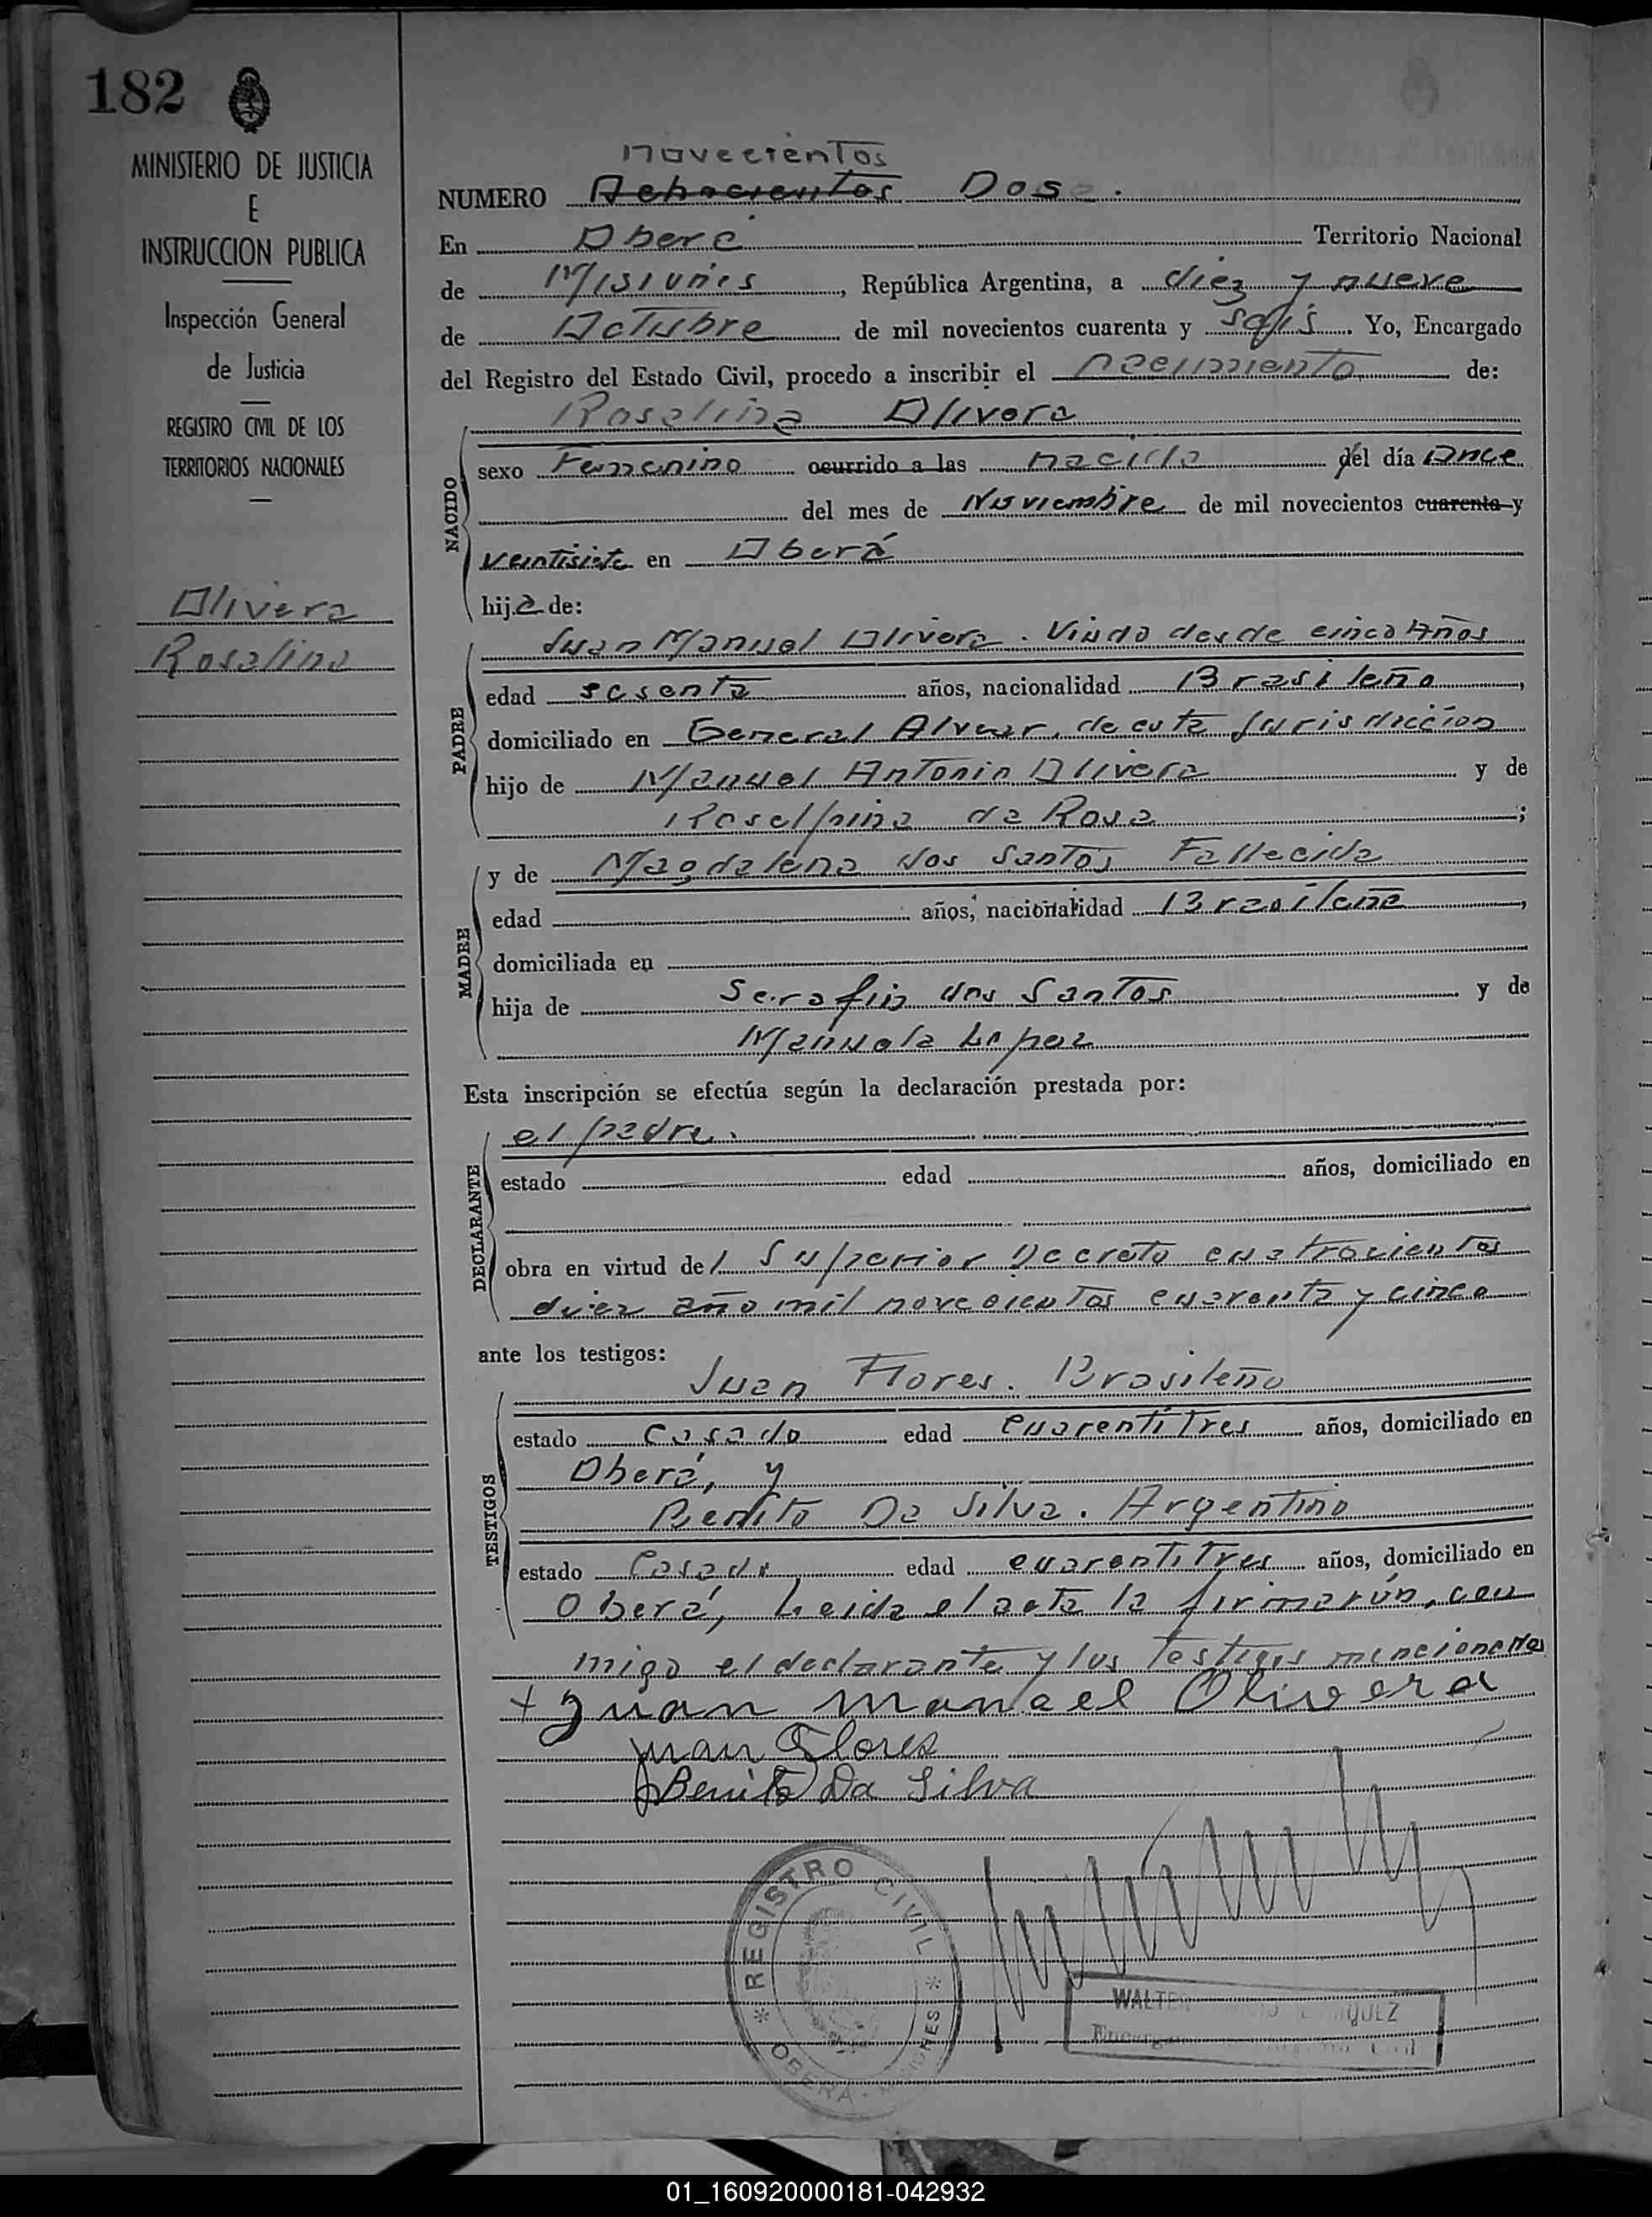 182
MINISTERIO DE JUSTICIA
E
INSTRUCCION PUBLICA
Inspección General
de Justicia
REGISTRO CIVIL DE LOS
TERRITORIOS NACIONALES
Olivera
Rosalina
novecientos
NUMERO Achocientos Dos.
En Oberá Territorio Nacional
de Misiones, República Argentina, a diez y nueve
de Octubre de mil novecientos cuarenta y seis. Yo, Encargado
del Registro del Estado Civil, procedo a inscribir el nacimiento de:
Rosalina Olivera
NACIDO
sexo Femenino ocurrido a las nacida del día Once
del mes de Noviembre de mil novecientos cuarenta y
veintisiete en Oberá
hija de:
PADRE
Juan Manuel Olivera. Viudo desde cinco Años
edad sesenta años, nacionalidad Brasileño,
domiciliado en General Alvear, de esta Jurisdiccion
hijo de Manuel Antonio Olivera y de
da Rosa;
MADRE
y de Magdalena dos Santos Fallecida
edad años, nacionalidad Brasileña,
domiciliada en
hija de Serafin dos Santos y de
Manuela Lopez
Esta inscripción se efectúa según la declaración prestada por:
DECLARANTE
el padre.
estado edad años, domiciliado en
obra en virtud del Superior Decreto cuatrocientos
diez año mil novecientos cuarenta y cinco
ante los testigos:
TESTIGOS
Juan Flores. Brasileño
estado Casado edad cuarentitres años, domiciliado en
Oberá, y
Benito Da Silva. Argentino
estado Casado edad cuarentitres años, domiciliado en
Oberá, Leida el acta la firmarón, con
migo el declarante y los testigos mencionados
+ Juan manael Olivera
Juan Flores
Benito Da Silva
* REGISTRO CIVIL *
OBERA - MISIONES
WALTER
01_160920000181-042932